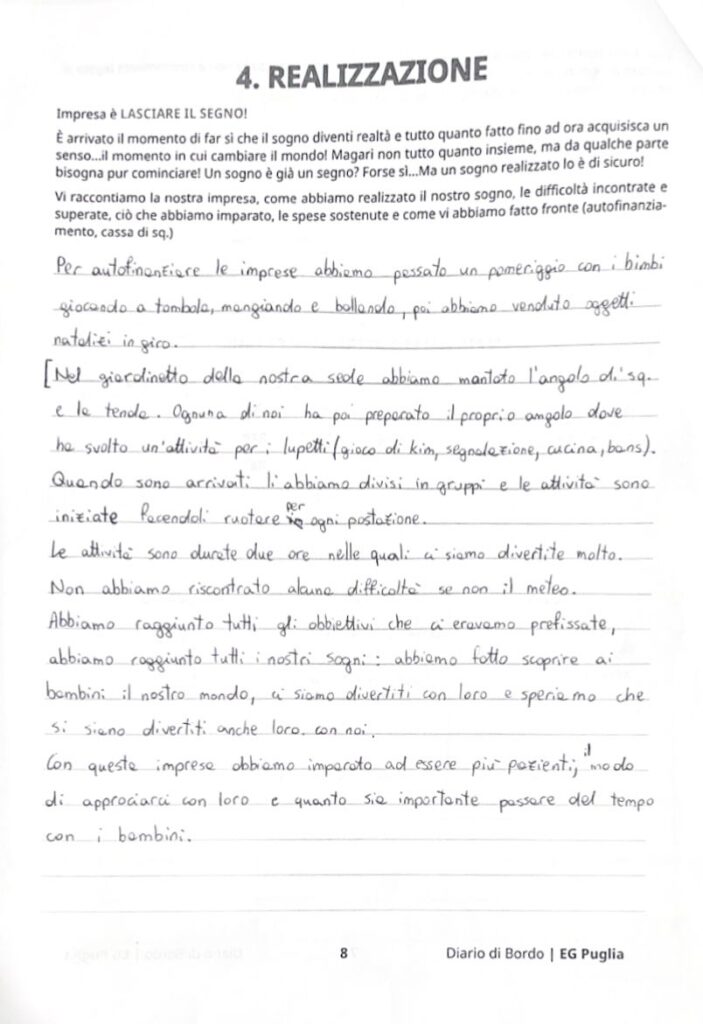 4. REALIZZAZIONE
Impresa è LASCIARE IL SEGNO!
È arrivato il momento di far sì che il sogno diventi realtà e tutto quanto fatto fino ad ora acquisisca un
senso...il momento in cui cambiare il mondo! Magari non tutto quanto insieme, ma da qualche parte
bisogna pur cominciare! Un sogno è già un segno? Forse sì...Ma un sogno realizzato lo è di sicuro!
Vi raccontiamo la nostra impresa, come abbiamo realizzato il nostro sogno, le difficoltà incontrate e
superate, ciò che abbiamo imparato, le spese sostenute e come vi abbiamo fatto fronte (autofinanzia-
mento, cassa di sq.)
Per autofinanziare le imprese abbiamo passato un pomeriggio con i bimbi
giocando a tombola, mangiando e ballando, poi abbiamo venduto oggetti
natalizi in giro.
[Nel giardinetto della nostra sede abbiamo montato l'angolo di sq.
e la tenda. Ognuna di noi ha poi preparato il proprio angolo dove
ha svolto un'attività per i lupetti (gioco di kim, segnalazione, cucina, bans).
Quando sono arrivati li abbiamo divisi in gruppi e le attività sono
iniziate facendoli ruotare per ogni postazione.
Le attività sono durate due ore nelle quali ci siamo divertite molto.
Non abbiamo riscontrato alcuna difficoltà se non il meteo.
Abbiamo raggiunto tutti gli obbiettivi che ci eravamo prefissate,
abbiamo raggiunto tutti i nostri sogni: abbiamo fatto scoprire ai
bambini il nostro mondo, ci siamo divertiti con loro e speriamo che
si siano divertiti anche loro. con noi.
Con questa impresa abbiamo imparato ad essere più pazienti, il modo
di approciarci con loro e quanto sia importante passare del tempo
con i bambini.
8
Diario di Bordo | EG Puglia